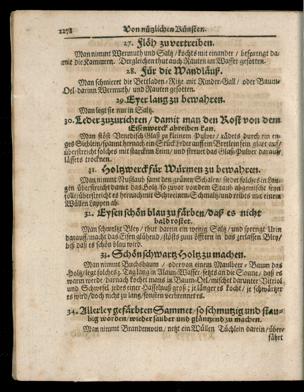 1278 Von nützlichen Künsten.
27. Flöh zu vertreiben
Man nimmt Wermuth und Saltz / kochts mit einander / besprengt da-
mit die Kammern. Dergleichen thut auch Rauten aus Wasser gesotten.
28. Für die Wandläuß.
Man schmieret die Bettladen-Ritz mit Rinder-Gall / oder Baum-
Oel darinn Wermuth / und Rauten gesotten.
29. Eyer lang zu bewahren.
Man legt sie nur in Saltz.
30. Leder zuzurichten / damit man den Rost von dem
Eisenwerck abreiben kan.
Man stöst Venedisch Glaß zu kleinem Pulver /
überstreicht solches mit starckem Leim / und streuet das Glaß-Pulver darauf /
läßts trocknen.
31. Holtzwerck für Würmen zu bewahren.
Man nimmt Nußlaub samt den grünen Schalen /
überstreicht damit das Holtz so zuvor von dem Staub abgewischt seyn
soll
Wüllen Lappen ab.
32. Eysen schön blau zu färben / daß es nicht
bald rostet.
Man schmeltzt Bley / thut darein ein wenig Saltz / und sprengt Urin
darauf, macht das Eisen glühend / stöst zum öfftern in das gelassen Bley /
biß daß es schön blau wird.
33. Schön schwartz Holtz zu machen.
Man nimmt Buchsbaum / oder von einem Maulbeer-Baum das
Holtz / legt solches 3. Tag lang in Alaun-Wasser / setzts an die Sonne / daß es
warm werde darnach kocht mans in Baum-Oel / mischt darunter Vitriol
und Schwefel jedes einer Haselnuß groß / je länger es kocht / je schwärtzer
es wird / doch nicht zu lang, sonsten verbrennet es.
34. Allerley gefärbten Sammet / so schmutzig und stau-
big worden / wieder sauber und gläntzend zu machen.
Man nimmt Brandenwein / netzt ein Wüllen Tüchlein darein / über-
führt